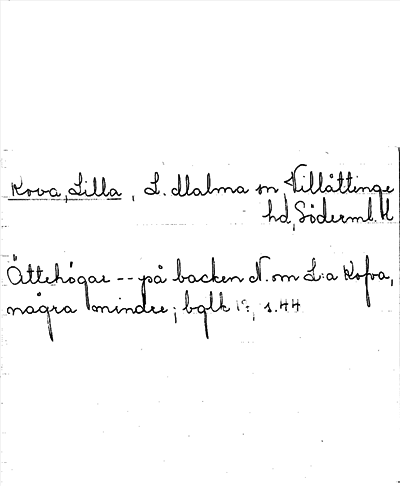 Kova, Lilla, L. Malma sn, Villåttinge
hd, Söderml. l.
Ättehögar -- på backen N. om L:a Kofva,
några mindre; bglk 12, s. 44